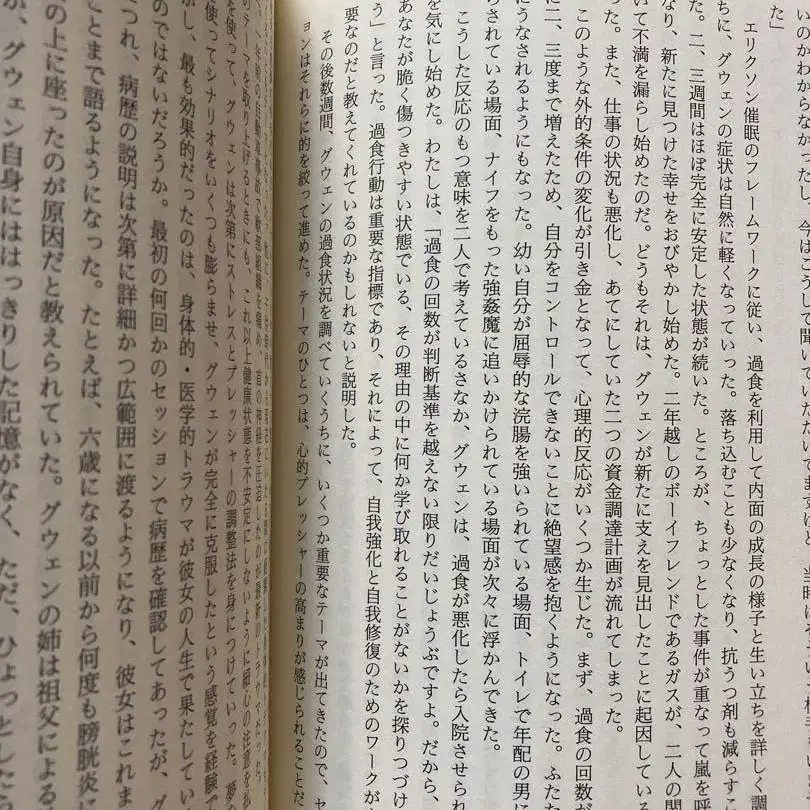 いのかわからなかったし、今はこうして聞いていただいてますけど、当時は
た」
エリクソン催眠のフレームワークに従い、過食を利用して内面の成長の様子と生い立ちを詳しく調
ちに、グウェンの症状は自然に軽くなっていった。落ち込むことも少なくなり、抗うつ剤も減らす
た。二、三週間はほぼ完全に安定した状態が続いた。ところが、ちょっとした事件が重なって嵐を呼
なり、新たに見つけた幸せをおびやかし始めた。二年越しのボーイフレンドであるガスが、二人の関
いて不満を漏らし始めたのだ。どうもそれは、グウェンが新たに支えを見出したことに起因している
った。また、仕事の状況も悪化し、あてにしていた二つの資金調達計画が流れてしまった。
このような外的条件の変化が引き金となって、心理的反応がいくつか生じた。まず、過食の回数が
に二、三度まで増えたため、自分をコントロールできないことに絶望感を抱くようになった。ふたた
にうなされるようにもなった。幼い自分が屈辱的な浣腸を強いられている場面、トイレで年配の男に
らされている場面、ナイフをもった強姦魔に追いかけられている場面が次々に浮かんできた。
こうした反応のもつ意味を二人で考えているさなか、グウェンは、過食が悪化したら入院させられ
を気にし始めた。わたしは、「過食の回数が判断基準を越えない限りだいじょうぶですよ。だから、
あなたが脆く傷つきやすい状態でいる、その理由の中に何か学び取れることがないかを探りつづけ
う」と言った。過食行動は重要な指標であり、それによって、自我強化と自我修復のためのワークが
要なのだと教えてくれているのかもしれないと説明した。
その後数週間、グウェンの過食状況を調べていくうちに、いくつか重要なテーマが出てきたので、セ
ョンはそれらに的を絞って進めた。テーマのひとつは、心的プレッシャーの高まりが感じられることだ
前の自動車事故で軟部組織を痛め、首の神経を圧迫したのが最新の
のテーマを取り上げるときにも、これ以上健康状態を不安定にしないように細心の注意を払
を使って、グウェンは次第にストレスとプレッシャーの調整法を身につけていった。夢の
使ってシナリオをいくつも膨らませ、グウェンが完全に克服したという感覚を経験で
かし、最も効果的だったのは、身体的・医学的トラウマが彼女の人生で果たしてい
のではないだろうか。最初の何回かのセッションで病歴を確認してあったが、グ
つれ、病歴の説明は次第に詳細かつ広範囲に渡るようになり、彼女はこれま
ことまで語るようになった。たとえば、六歳になる以前から何度も膀胱炎に
の上に座ったのが原因だと教えられていた。グウェンの姉は祖父による
が、グウェン自身にははっきりした記憶がなく、ただ、ひょっとしたら